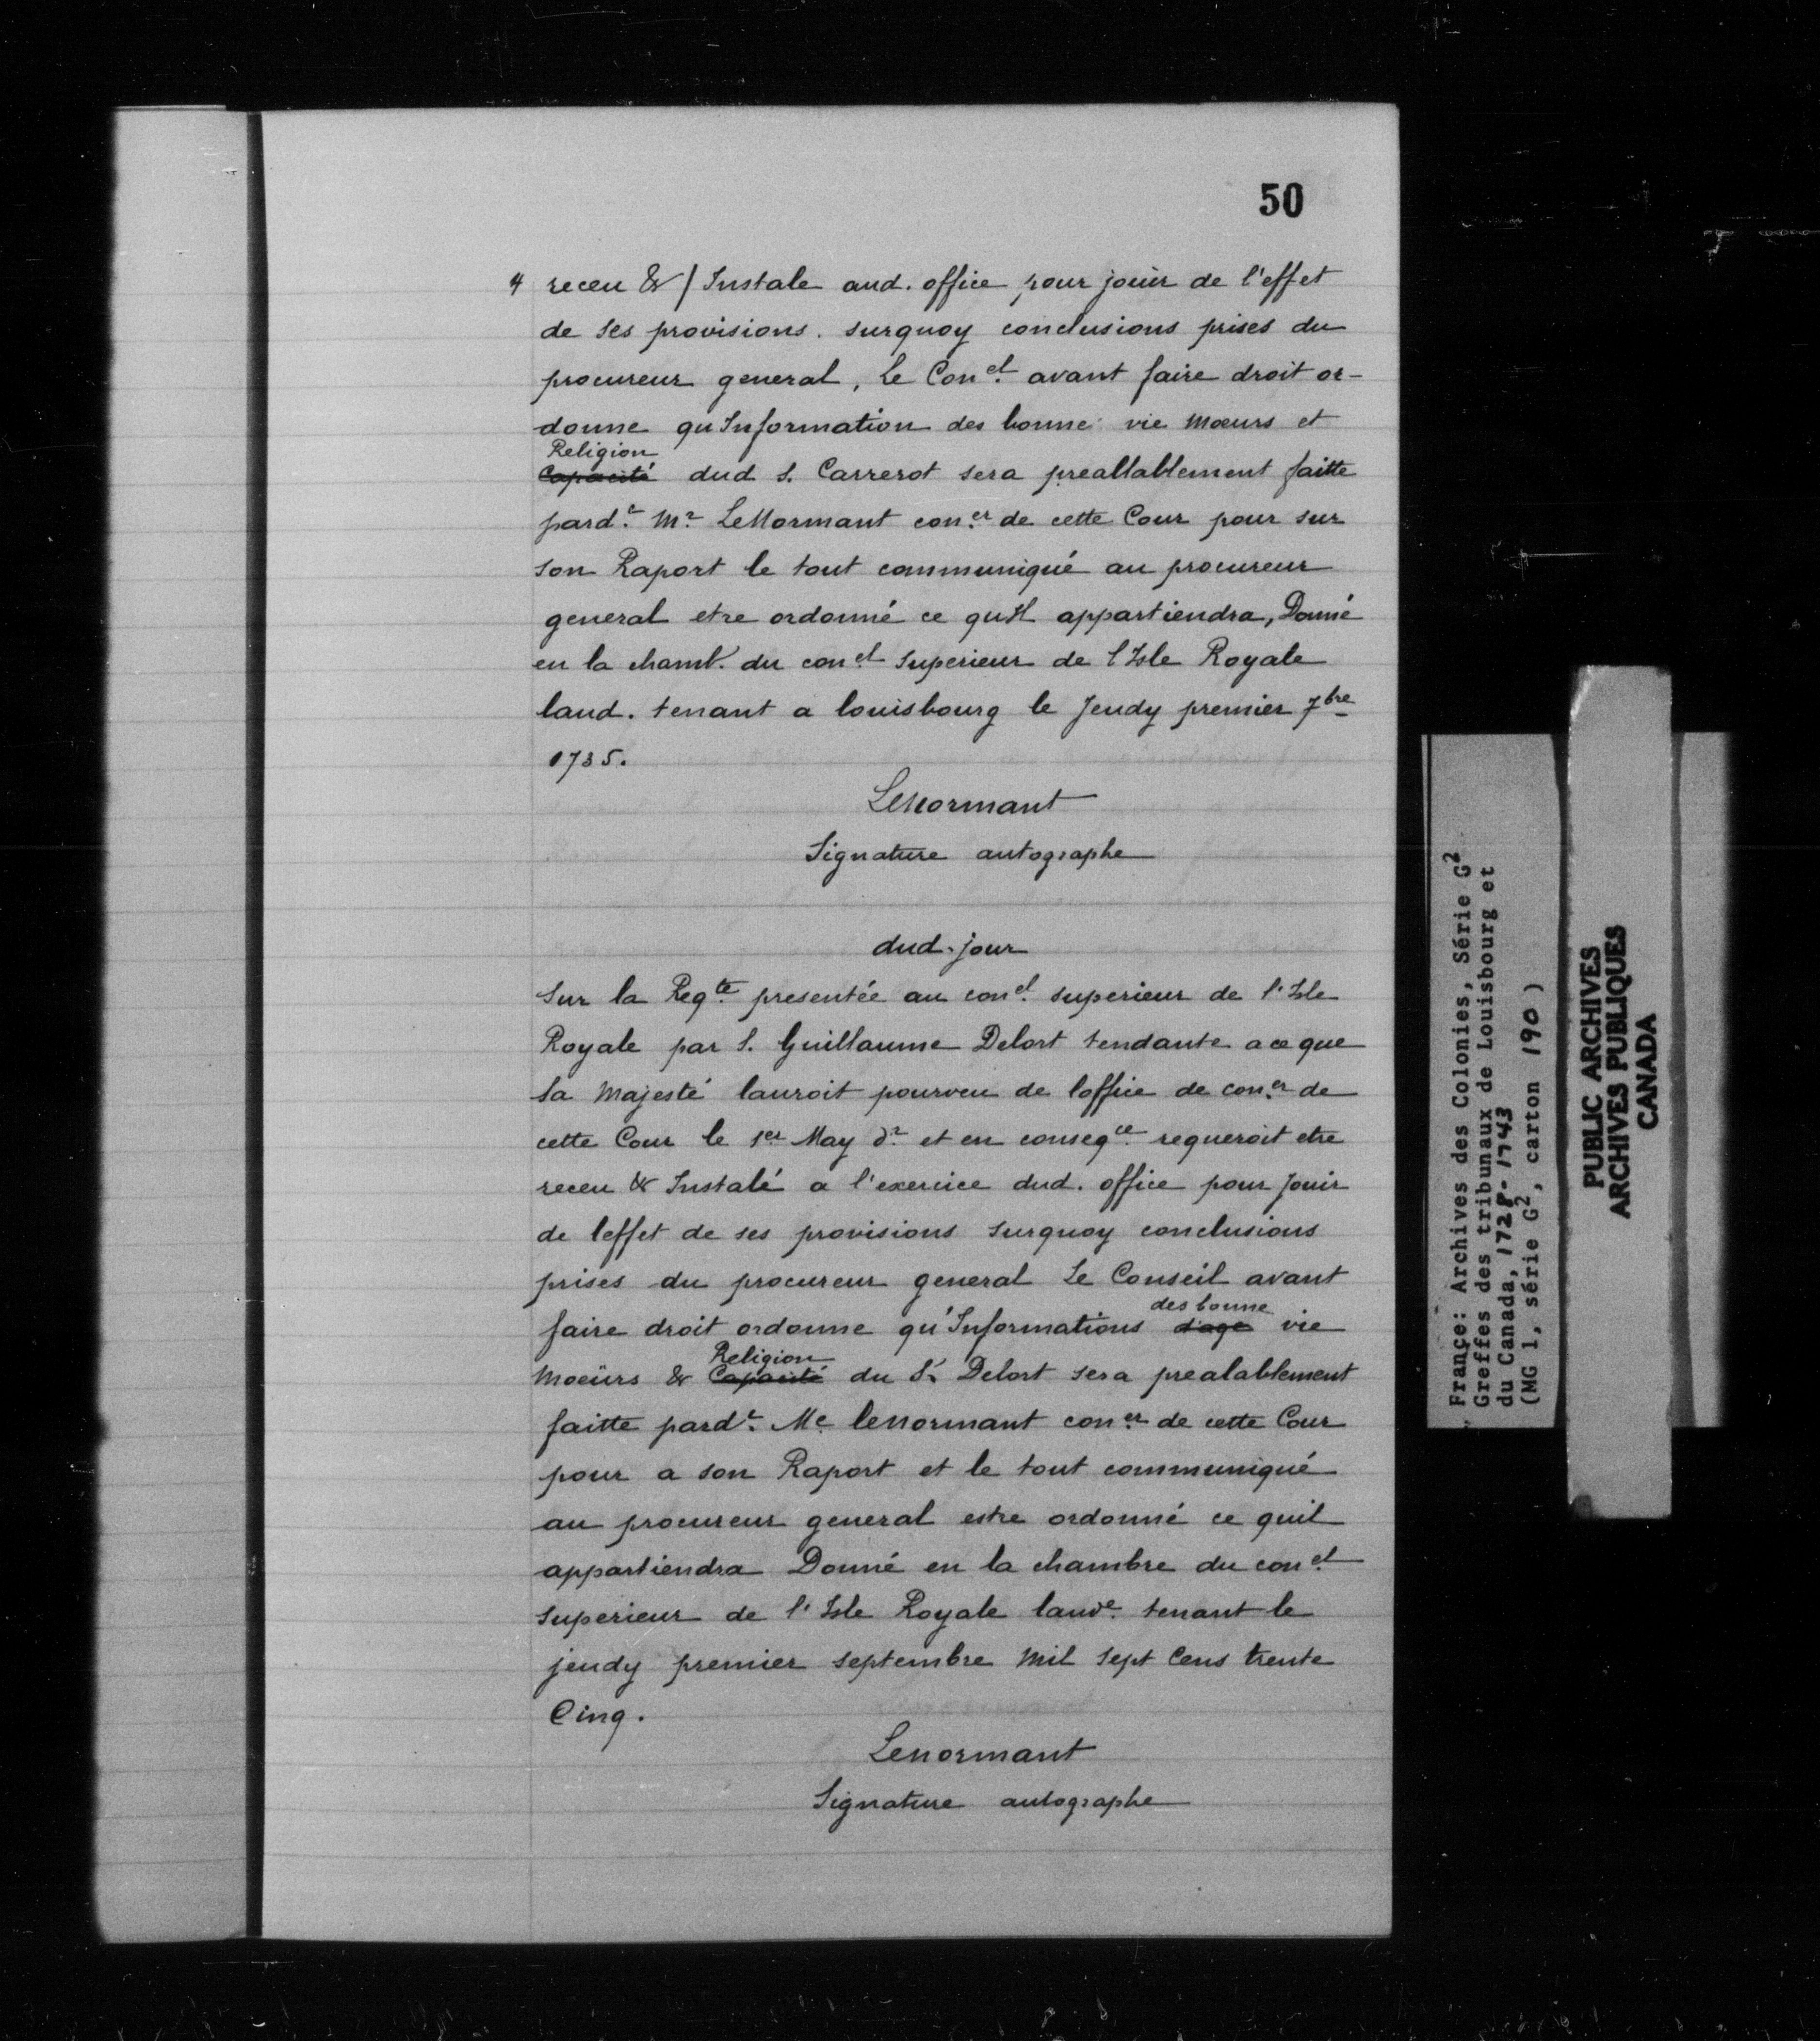 50
4 receu & / Instale aud. office pour jouir de l'effet
de ses provisions. surquoy conclusions prises du
procureur general, Le Con.el avant faire droit or-
donne qu Information des bonne vie mœurs et
Religion
Capacité dud S. Carrerot sera preallablement faitte
pard.t Mr LeNormant con.er de cette Cour pour sur
son Raport le tout communiqué au procureur
general etre ordonné ce quil appartiendra, Donné
en la chamb. du con.el Superieur de l'Isle Royale
laud. tenant a louisbourg le Jeudy premier 7bre
1735.
Lenormant
Signature autographe
dud. jour
Sur la Reqte presentée au con.el superieur de l'Isle
Royale par S. Guillaume Delort tendante a ce que
Sa Majesté lauroit pourveu de loffice de con.er de
cette Cour le 1er May dr et en conseqce requeroit etre
receu & Instalé a l'exercice dud. office pour Jouir
de leffet de ses provisions surquoy conclusions
prises du procureur general Le Conseil avant
des bonne
faire droit ordonne qu'Informations d'age vie
Religion
moeürs & Capacité du Sr Delort sera prealablement
faitte pard.t Me lenormant con.er de cette Cour
pour a son Raport et le tout communiqué
au procureur general estre ordonné ce quil
appartiendra Donné en la chambre du con.el
superieur de l'Isle Royale laude tenant le
jeudy premier septembre Mil Sept Cens trente
Cinq.
Lenormant
Signature autographe
France: Archives des Colonies, Série G2
Greffes des tribunaux de Louisbourg et
du Canada, 1728-1743
(MG 1, série G2, carton 190)
PUBLIC ARCHIVES
ARCHIVES PUBLIQUES
CANADA